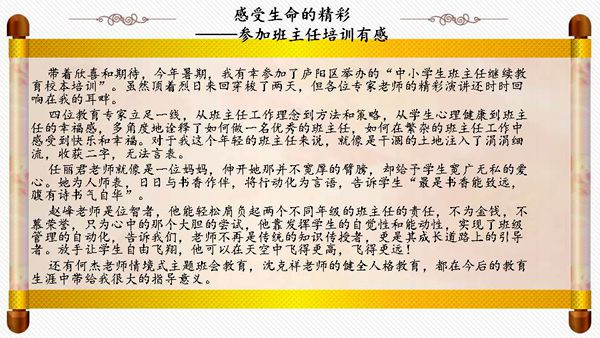 感受生命的精彩
——参加班主任培训有感
带着欣喜和期待，今年暑期，我有幸参加了庐阳区举办的“中小学生班主任继续教
育校本培训”。虽然顶着烈日来回穿梭了两天，但各位专家老师的精彩演讲还时时回
响在我的耳畔。
四位教育专家立足一线，从班主任工作理念到方法和策略，从学生心理健康到班主
任的幸福感，多角度地诠释了如何做一名优秀的班主任，如何在繁杂的班主任工作中
感受到快乐和幸福。对于我这个年轻的班主任来说，就像是干涸的土地注入了涓涓细
流，收获二字，无法言表。
任丽君老师就像是一位妈妈，伸开她那并不宽厚的臂膀，却给予学生宽广无私的爱
心。她为人师表，日日与书香作伴，将行动化为言语，告诉学生“最是书香能致远，
腹有诗书气自华”。
赵峰老师是位智者，他能轻松肩负起两个不同年级的班主任的责任，不为金钱，不
慕荣誉，只为心中的那个大胆的尝试，他靠发挥学生的自觉性和能动性，实现了班级
管理的自动化，告诉我们，老师不再是传统的知识传授者，更是其成长道路上的引导
者。放手让学生自由飞翔，他可以在天空中飞得更高，飞得更远！
还有何杰老师情境式主题班会教育，沈克祥老师的健全人格教育，都在今后的教育
生涯中带给我很大的指导意义。